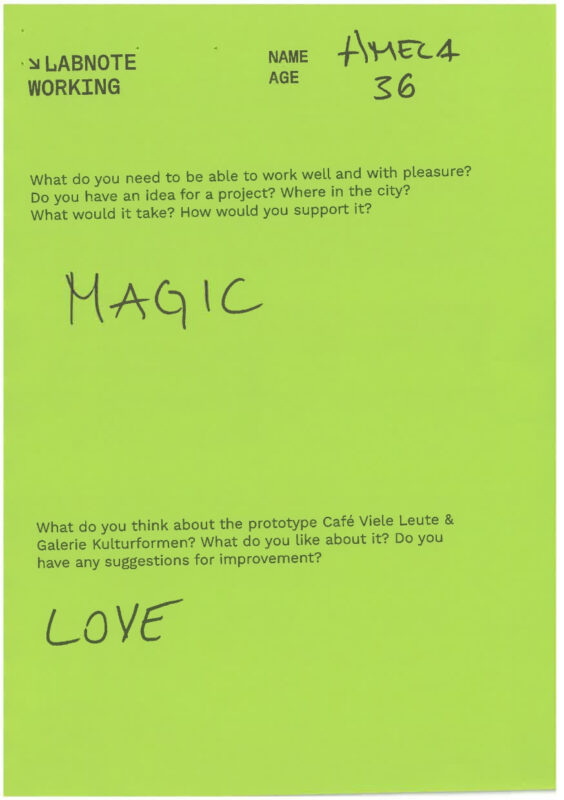 ↘ LABNOTE
WORKING
NAME AMELA
AGE 36
What do you need to be able to work well and with pleasure?
Do you have an idea for a project? Where in the city?
What would it take? How would you support it?
MAGIC
What do you think about the prototype Café Viele Leute &
Galerie Kulturformen? What do you like about it? Do you
have any suggestions for improvement?
LOVE